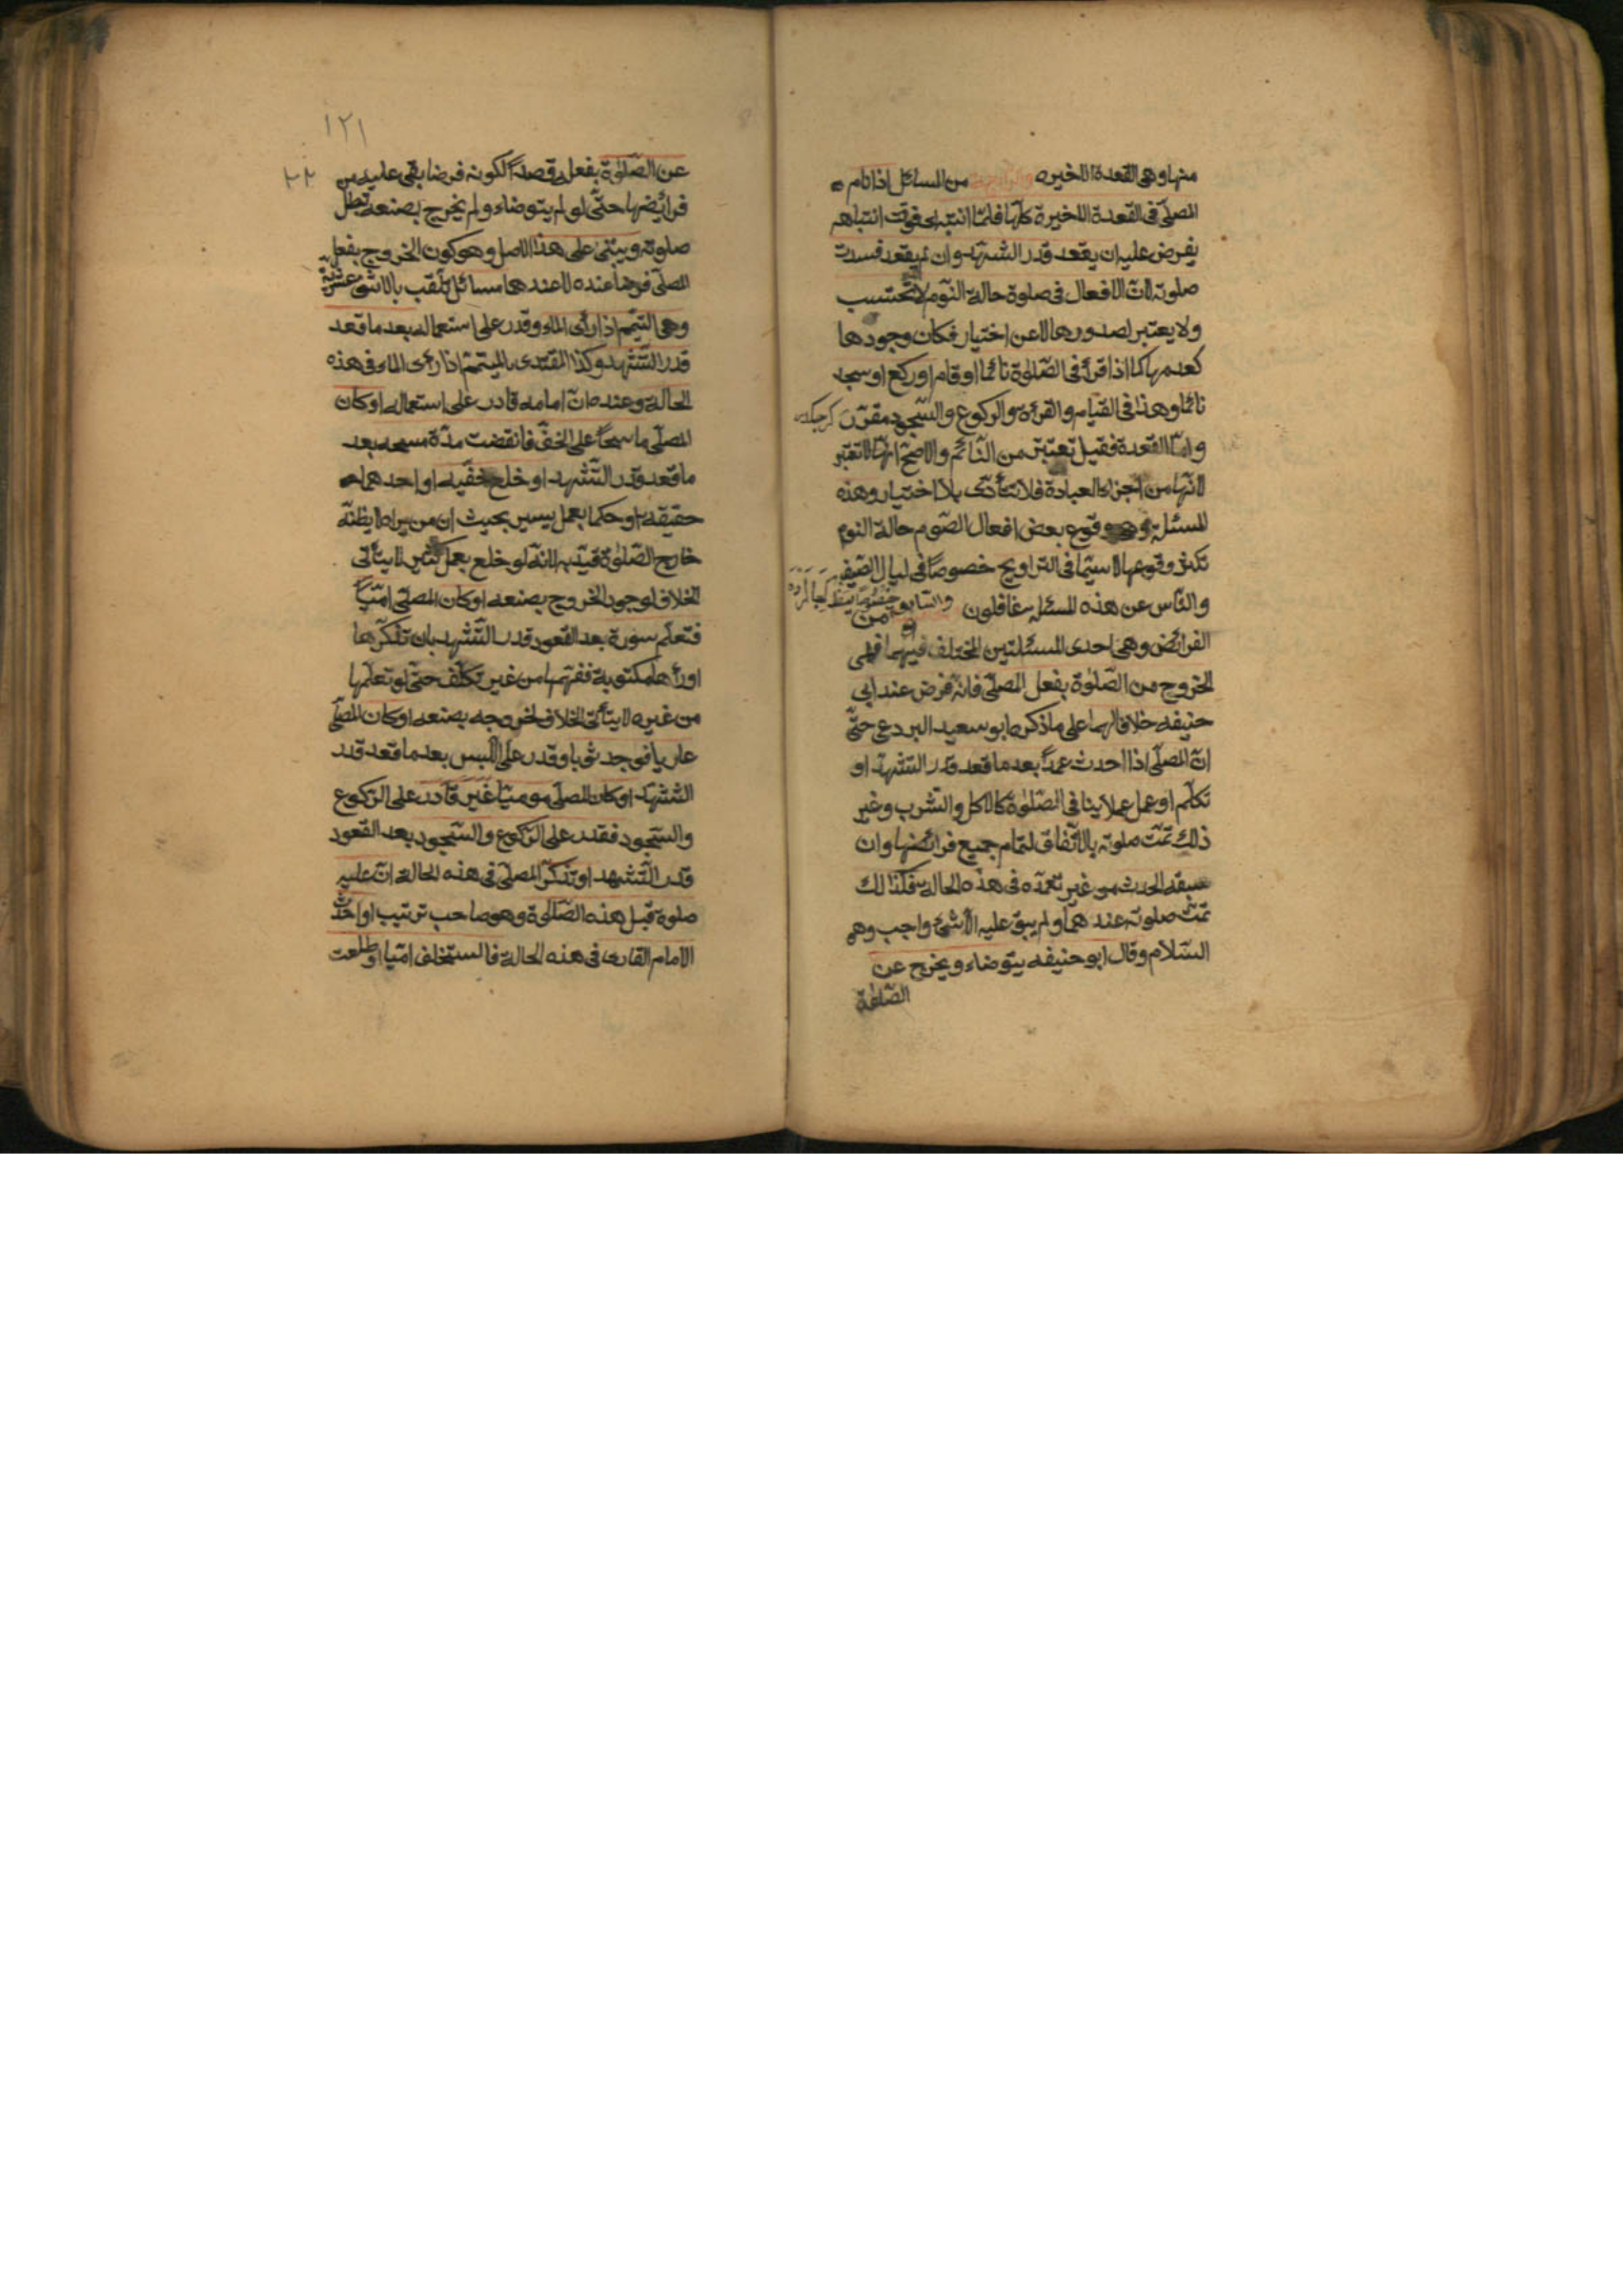 منها وهى القعدة الاخيرة والرابعة من المسائل اذا نام
المصلّى فى القعدة الاخيرة كلّها فلمّا انتبه فى وقت انتباهه
يفرض عليه ان يقعد قدر التشهّد وان لم يقعد فسدت
صلوته لانّ الافعال فى صلوة حالة النّوم لا تحتسب
ولا يعتبر لصدورها لا عن اختيار فكان وجودها
كعدمها كما اذا قرأ فى الصّلوة نائما او قام او ركع او سجد
نائما وهذا فى القيام والقرءة والركوع والسّجود مقرّر
وامّا القعدة فقيل تعتبر من النّائم والاصحّ انّها لا تعتبر
لانّها من اجزاء العبادة فلا تتأدّى بلا اختيار وهذه
المسئلة وهى وقوع بعض افعال الصّوم حالة النوم
تكثر وقوعها لا سيّما فى التراويح خصوصًا فى ليال الصّيف
والنّاس عن هذه المسئلة غافلون والسّابع من
الفرائض وهى احدى المسئلتين المختلف فيهما فهى
الخروج من الصّلوة بفعل المصلّى فانّه فرض عند ابى
حنيفه خلافا لهما على ما ذكره ابو سعيد البردعى حتّى
انّ المصلّى اذا احدث عمدًا بعد ما قعد قدر التشهّد او
تكلّم او عمل عملا ينافى الصّلوة كالاكل والشّرب وغير
ذلك تمّت صلوته بالاتّفاق لتمام جميع فرائضها وان
سبقه الحدث من غير تعمّده فى هذه الحالة فكذلك
تمّت صلوته عندهما ولم يبق عليه الّا شئ واجب وهو
السّلام وقال ابو حنيفه يتوضاء ويخرج عن
الصّلوة
١٢١
عن الصّلوة بفعله قصدًا لكونه فرضا بقى عليه من
فرائضها حتّى لو لم يتوضاء ولم يخرج بصنعه تبطل
صلوته ويبتنى على هذا الاصل وهو كون الخروج بفعل
المصلّى فرضا عنده لا عندهما مسائل تلقّب بالاثنى عشريّة
وهى المتيمّم اذا رأى الماء وقدر على استعماله بعد ما قعد
قدر التّشهد وكذا المقتدى بالمتيمّم اذا رأى الماء فى هذه
الحالة وعنده انّ امامه قادر على استعماله او كان
المصلّى ماسحًا على الخفّ فانقضت مدّة مسحه بعد
ما قعد قدر التّشهد او خلع خفّيه او احدهما
حقيقة او حكما بعمل يسير بحيث ان من يراه لا يظنّه
خارج الصّلوة قيّد به لانّه لو خلع بعمل كثير لا يتأتى
الخلاف لوجود الخروج بصنعه او كان المصلّى امّيّا
فتعلّم سورة بعد القعود قدر التّشهد بان تذكّرها
او رأها مكتوبة ففهمها من غير تكلّف حتّى لو تعلّمها
من غيره لا يتأتى الخلاف لخروجه بصنعه او كان المصلّى
عاريا فوجد ثوبا وقدر على اللّبس بعد ما قعد قدر
التشهّد او كان المصلّى موميًا غير قادر على الرّكوع
والسّجود فقدر على الرّكوع والسّجود بعد القعود
قدر التّشهد او تذكّر المصلّى فى هذه الحالة انّ عليه
صلوة قبل هذه الصّلوة وهو صاحب ترتيب او احدث
الامام القارى فى هذه الحالة فاستخلف امّيا او طلعت